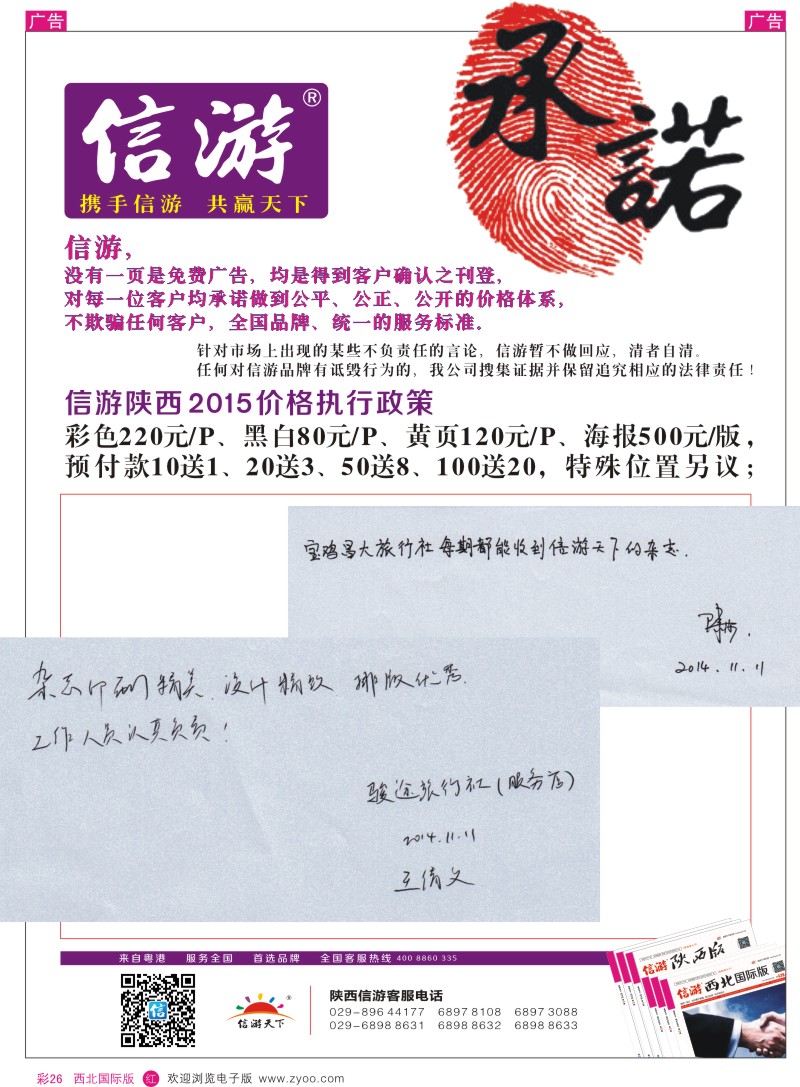 广告
广告
信游®
携手信游 共赢天下
承諾
信游，
没有一页是免费广告，均是得到客户确认之刊登，
对每一位客户均承诺做到公平、公正、公开的价格体系，
不欺骗任何客户，全国品牌、统一的服务标准。
针对市场上出现的某些不负责任的言论，信游暂不做回应，清者自清。
任何对信游品牌有诋毁行为的，我公司搜集证据并保留追究相应的法律责任！
信游陕西2015价格执行政策
彩色220元/P、黑白80元/P、黄页120元/P、海报500元/版，
预付款10送1、20送3、50送8、100送20，特殊位置另议；
宝鸡昌大旅行社每期都能收到信游天下的杂志.
2014.11.11
杂志印刷精美.设计精致.排版优秀.
工作人员认真负责！
骏途旅行社(服务店)
2014.11.11
王倩文
来自粤港 服务全国 首选品牌 全国客服热线 400 8860 335
信游 陕西版
信游 西北国际版
信
信游天下®
陕西信游客服电话
029-896 44177 6897 8108 6897 3088
029-6898 8631 6898 8632 6898 8633
彩26 西北国际版 红 欢迎浏览电子版 www.zyoo.com